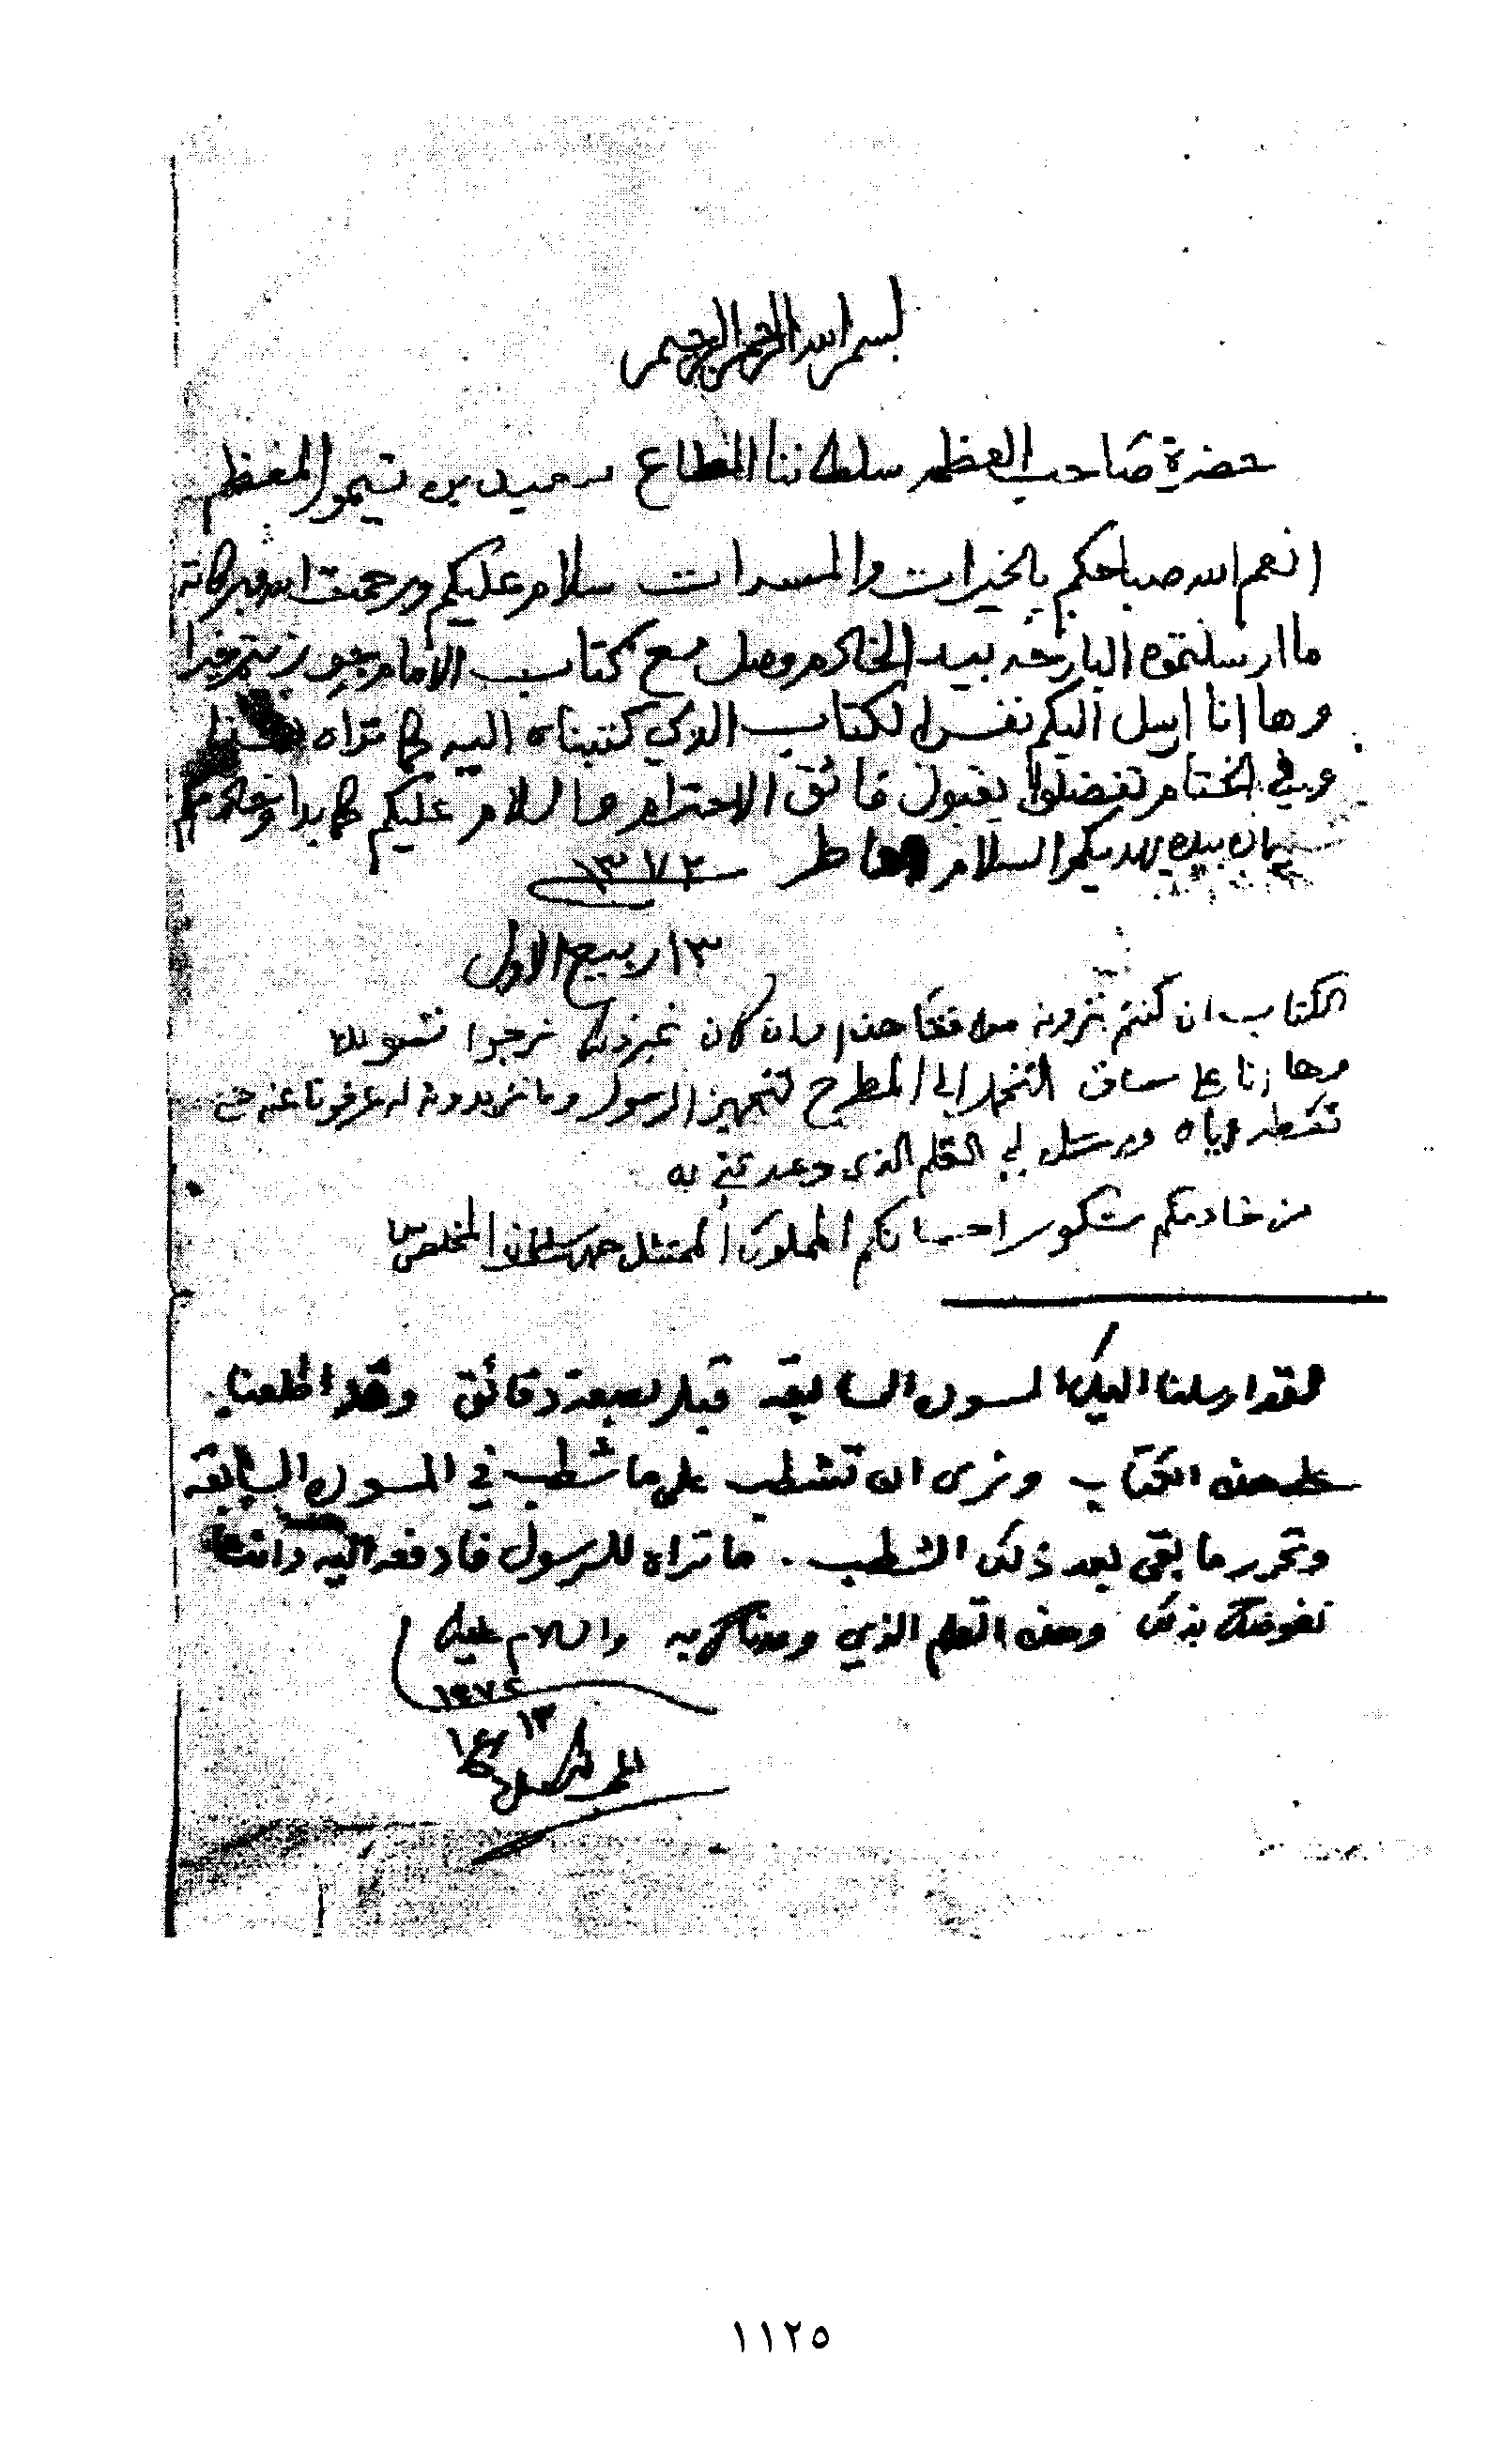 بسم الله الرحمن الرحيم
حضرة صاحب العظمه سلطاننا المطاع سعيد بن تيمور المعظم
انعم الله صباحكم بالخيرات والمسرات سلام عليكم ورحمت الله وبركاته
ما ارسلتموه البارحه بيد الخادم وصل مع كتاب الامام
وها انا ارسل اليكم نفس الكتاب الذي كتبناه اليه كما تراه
وفي الختام تفضلوا بقبول فائق الاحترام والسلام عليكم كما بدا وخادمكم
بيده يهديكم السلام
١٣٧٢
١٣ ربيع الاول
الكتاب ان كنتم ترونه موافقا هذا وان كان غير ذلك نرجوا
وها انا على ساق التنجيل الى المطرح لتجهيز الرسول وما تريدونه له عرفونا عنه حتى
اياه ويرسل لي القلم الذي وعدتني به
من خادمكم شكور احسانكم المملوك الممتثل المخلص
لقد ارسلنا اليك المسوده السابقه قبل بضعة دقائق وقد اطلعنا
على هذه الكتاب ونرى ان تشطب على ما شطب في المسوده السابقه
وتحرر ما بقى بعد ذلك الشطب . ما تراه للرسول فادفعه اليه
نفوضك بذلك وهذه القلم الذي وعدناك به والسلام عليك
١٣٧٢
١٣
١١٢٥